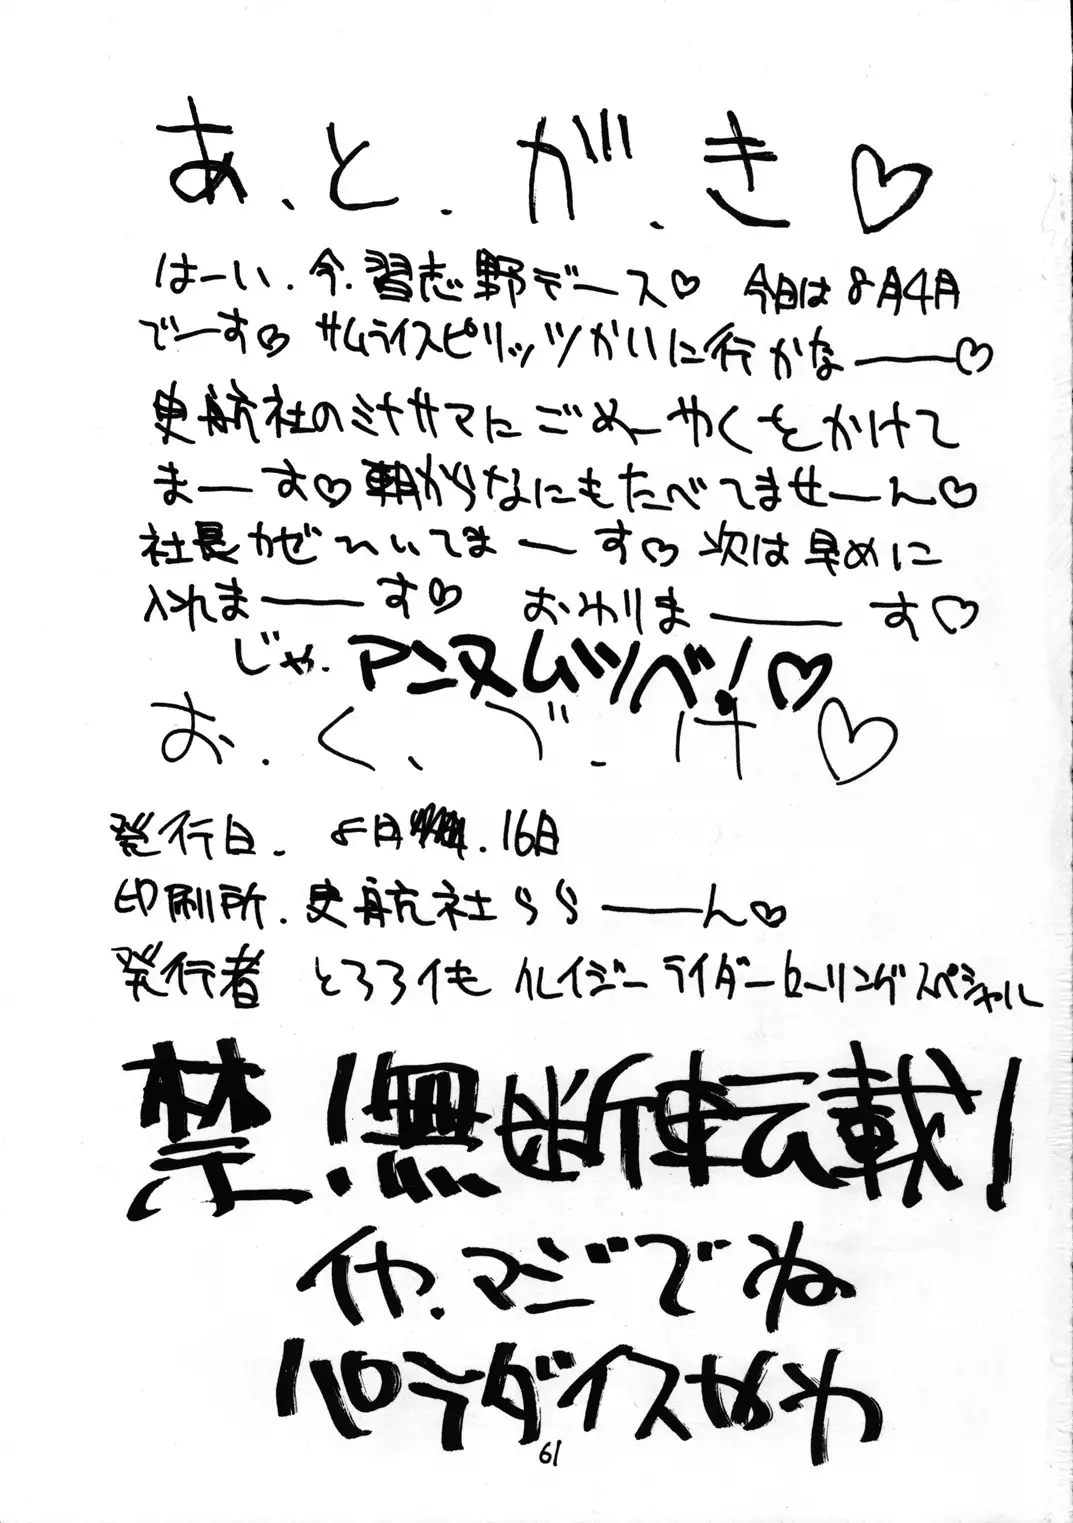 あ、と、が、き♡
はーい、今、習志野デース♡ 今日は8月4日
でーす♡ サムライスピリッツかいに行かなーー♡
史航社のミナサマにごめーやくをかけて
まーーす♡ 朝からなにもたべてませーーん♡
社長かぜひいてまーーす♡ 次は早めに
入れまーーす♡ おわりまーーす♡
じゃ、アンヌムツベ!♡
お、く、づ、け♡
発行日、8月 、16日
印刷所、史航社らら――ん♡
発行者 とろろイも クレイジーライダーローリングスペシャル
禁!無断転載!
イヤ、マジでね
パロラダイスなわ
61